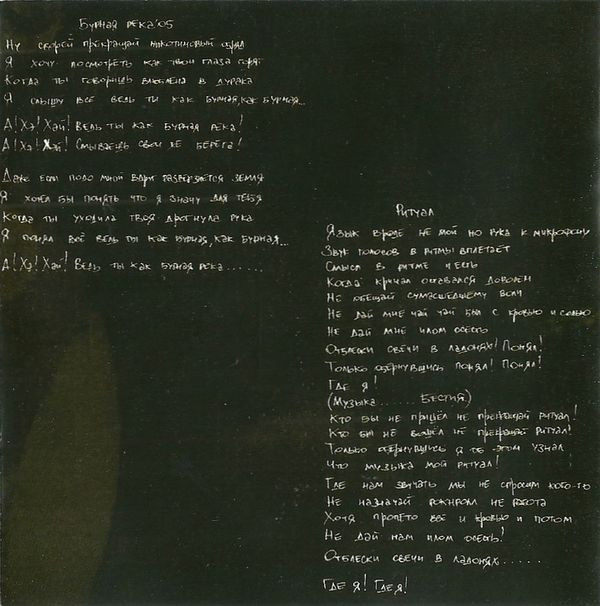 Бурная река'05
Ну скорей прекращай никотиновый обряд
Я хочу посмотреть как твои глаза горят
Когда ты говоришь влюблена в дурака
Я слышу всё ведь ты как бурная, как бурная...
А! Хэ! Хэй! Ведь ты как бурная река!
А! Хэ! Хэй! Смываешь свои же берега!
Даже если подо мной вдруг разверзнется земля
Я хотел бы понять что я значу для тебя
Когда ты уходила твоя дрогнула рука
Я понял всё ведь ты как бурная, как бурная...
А! Хэ! Хэй! Ведь ты как бурная река......
Ритуал
Язык вроде не мой но рука к микрофону
Звук голосов в ритмы вплетает
Смысл в ритме и есть
Когда кричал оставался доволен
Не обещай сумасшедшему воли
Не дай мне чай чай был с кровью и солью
Не дай мне илом осесть
Отблески свечи в ладонях! Понял!
Только обернувшись понял! Понял!
Где я!
(Музыка....... Бестия)
Кто бы не пришёл не прекращай ритуал!
Кто бы не вошёл не прекращай ритуал!
Только обернувшись я об этом узнал
Что музыка мой ритуал!
Где нам звучать мы не спросим кого-то
Не назначай рокнролл не работа
Хотя пропето всё и кровью и потом
Не дай нам илом осесть!
Отблески свечи в ладонях......
Где я! Где я!